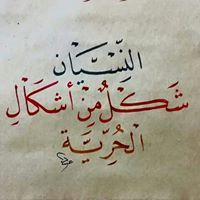 النِّسْيَان
شَكْلٌ مِنْ أشكَالِ
الْحُرِّيَّة